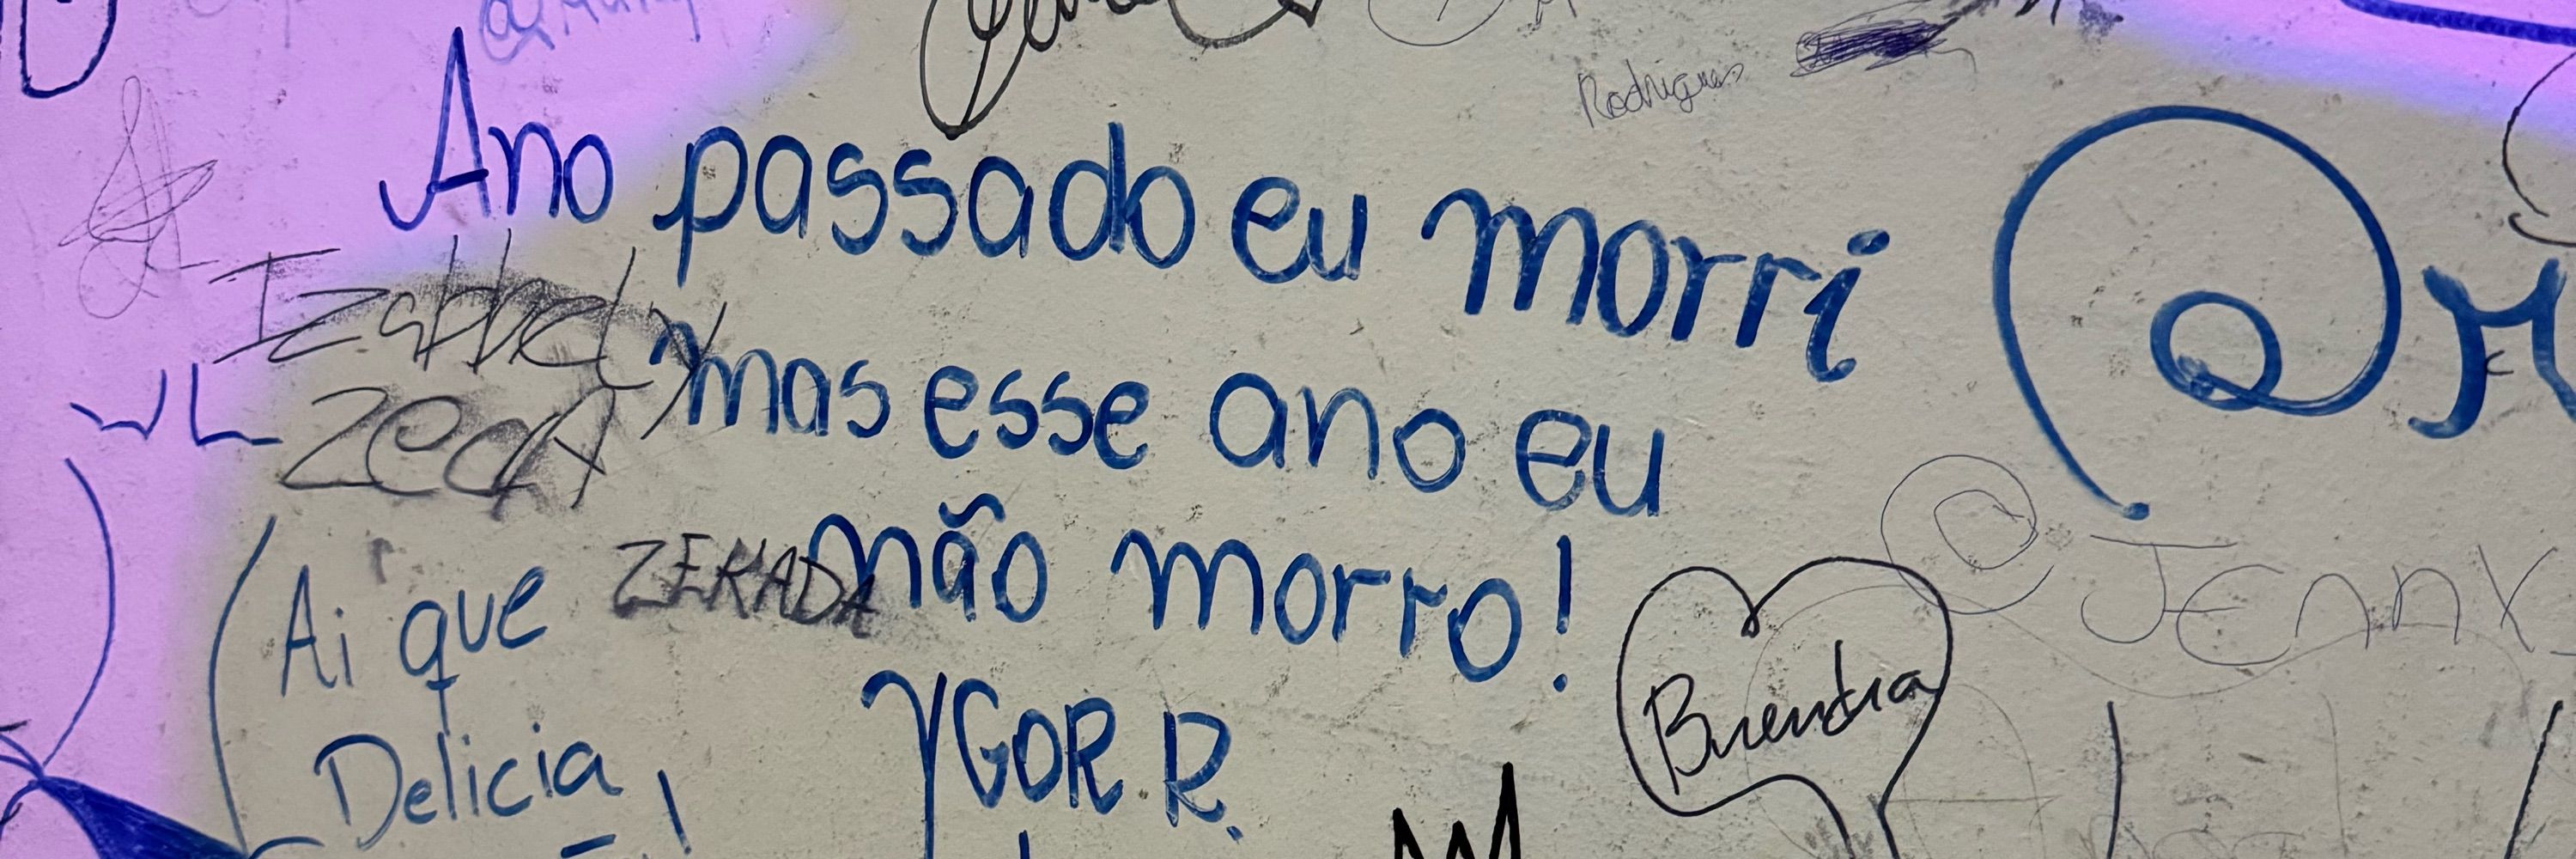 Rodrigues
Ano passado eu morri
mas esse ano eu
não morro!
YGOR R.
Izabbely
ZecA
ZEKADA
Ai que
Delicia
Jenny
Brenda